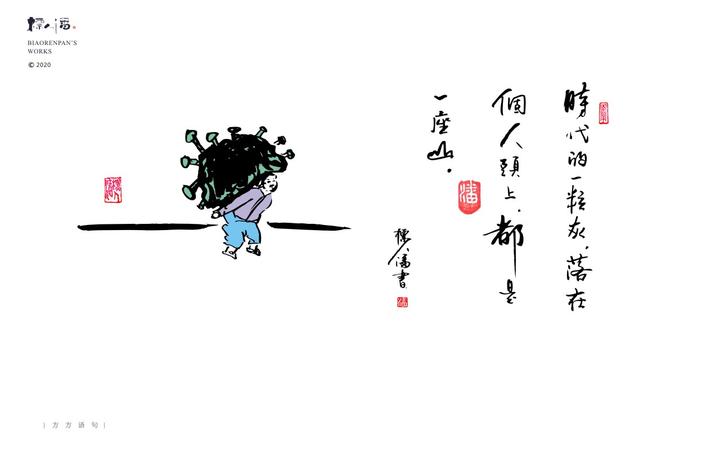 標人潘
BIAORENPAN'S
WORKS
© 2020
時代的一粒灰，落在
個人頭上，都是
一座山。
標人潘書
潘
| 方方语句 |